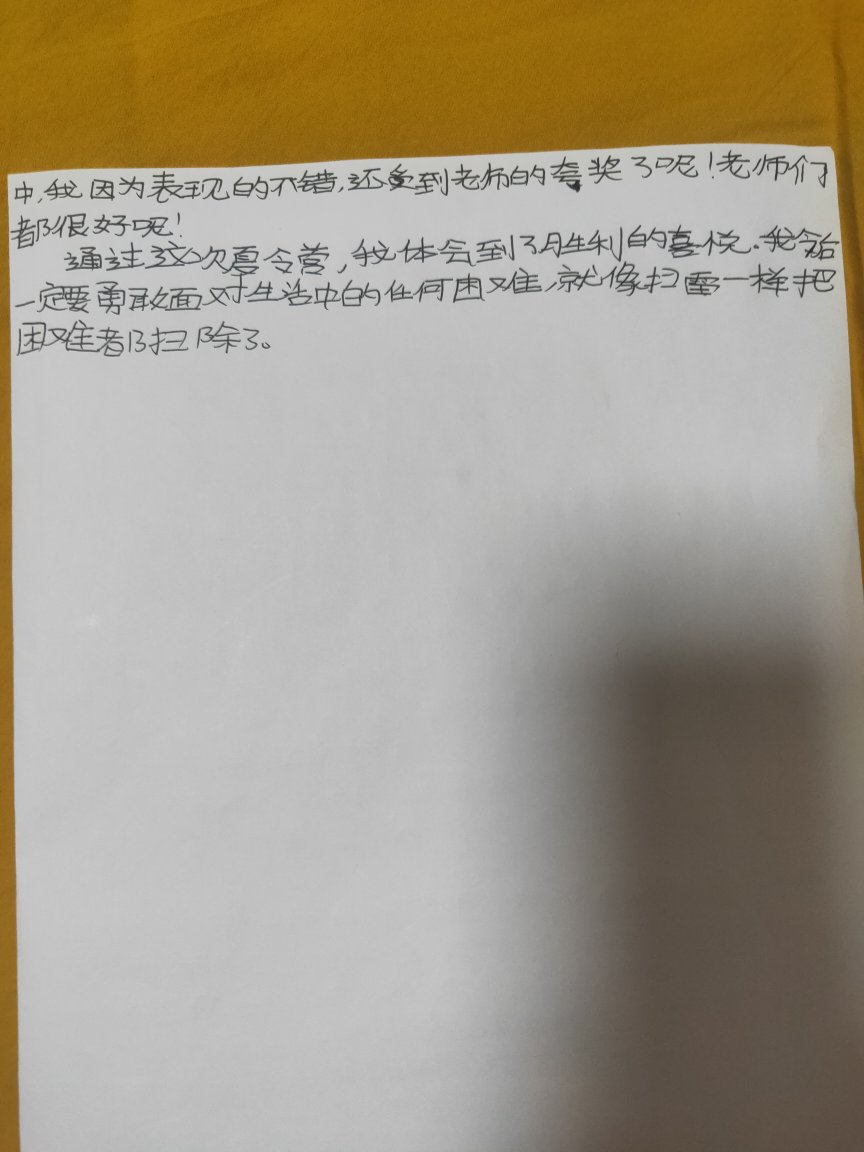 中,我因为表现的不错,还受到老师的夸奖了呢!老师们
都很好呢!
通过这次夏令营,我体会到了胜利的喜悦.我今后
一定要勇敢面对生活中的任何困难,就像扫雷一样把
困难都扫除了。